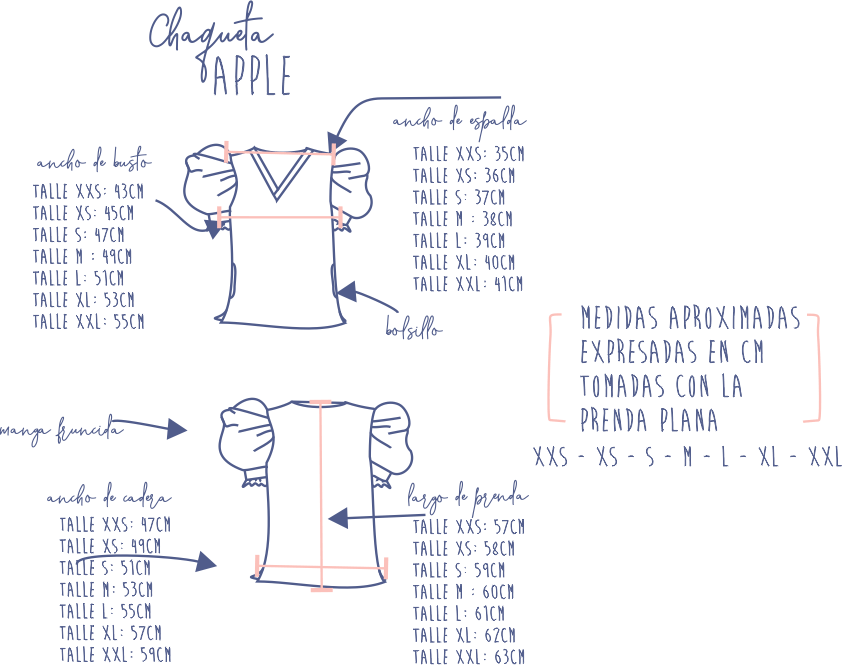 Chaqueta
APPLE
ancho de busto
TALLE XXS: 43CM
TALLE XS: 45CM
TALLE S: 47CM
TALLE M : 49CM
TALLE L: 51CM
TALLE XL: 53CM
TALLE XXL: 55CM
ancho de espalda
TALLE XXS: 35CM
TALLE XS: 36CM
TALLE S: 37CM
TALLE M : 38CM
TALLE L: 39CM
TALLE XL: 40CM
TALLE XXL: 41CM
bolsillo
MEDIDAS APROXIMADAS
EXPRESADAS EN CM
TOMADAS CON LA
PRENDA PLANA
XXS - XS - S - M - L - XL - XXL
manga fruncida
ancho de cadera
TALLE XXS: 47CM
TALLE XS: 49CM
TALLE S: 51CM
TALLE M: 53CM
TALLE L: 55CM
TALLE XL: 57CM
TALLE XXL: 59CM
largo de prenda
TALLE XXS: 57CM
TALLE XS: 58CM
TALLE S: 59CM
TALLE M : 60CM
TALLE L: 61CM
TALLE XL: 62CM
TALLE XXL: 63CM